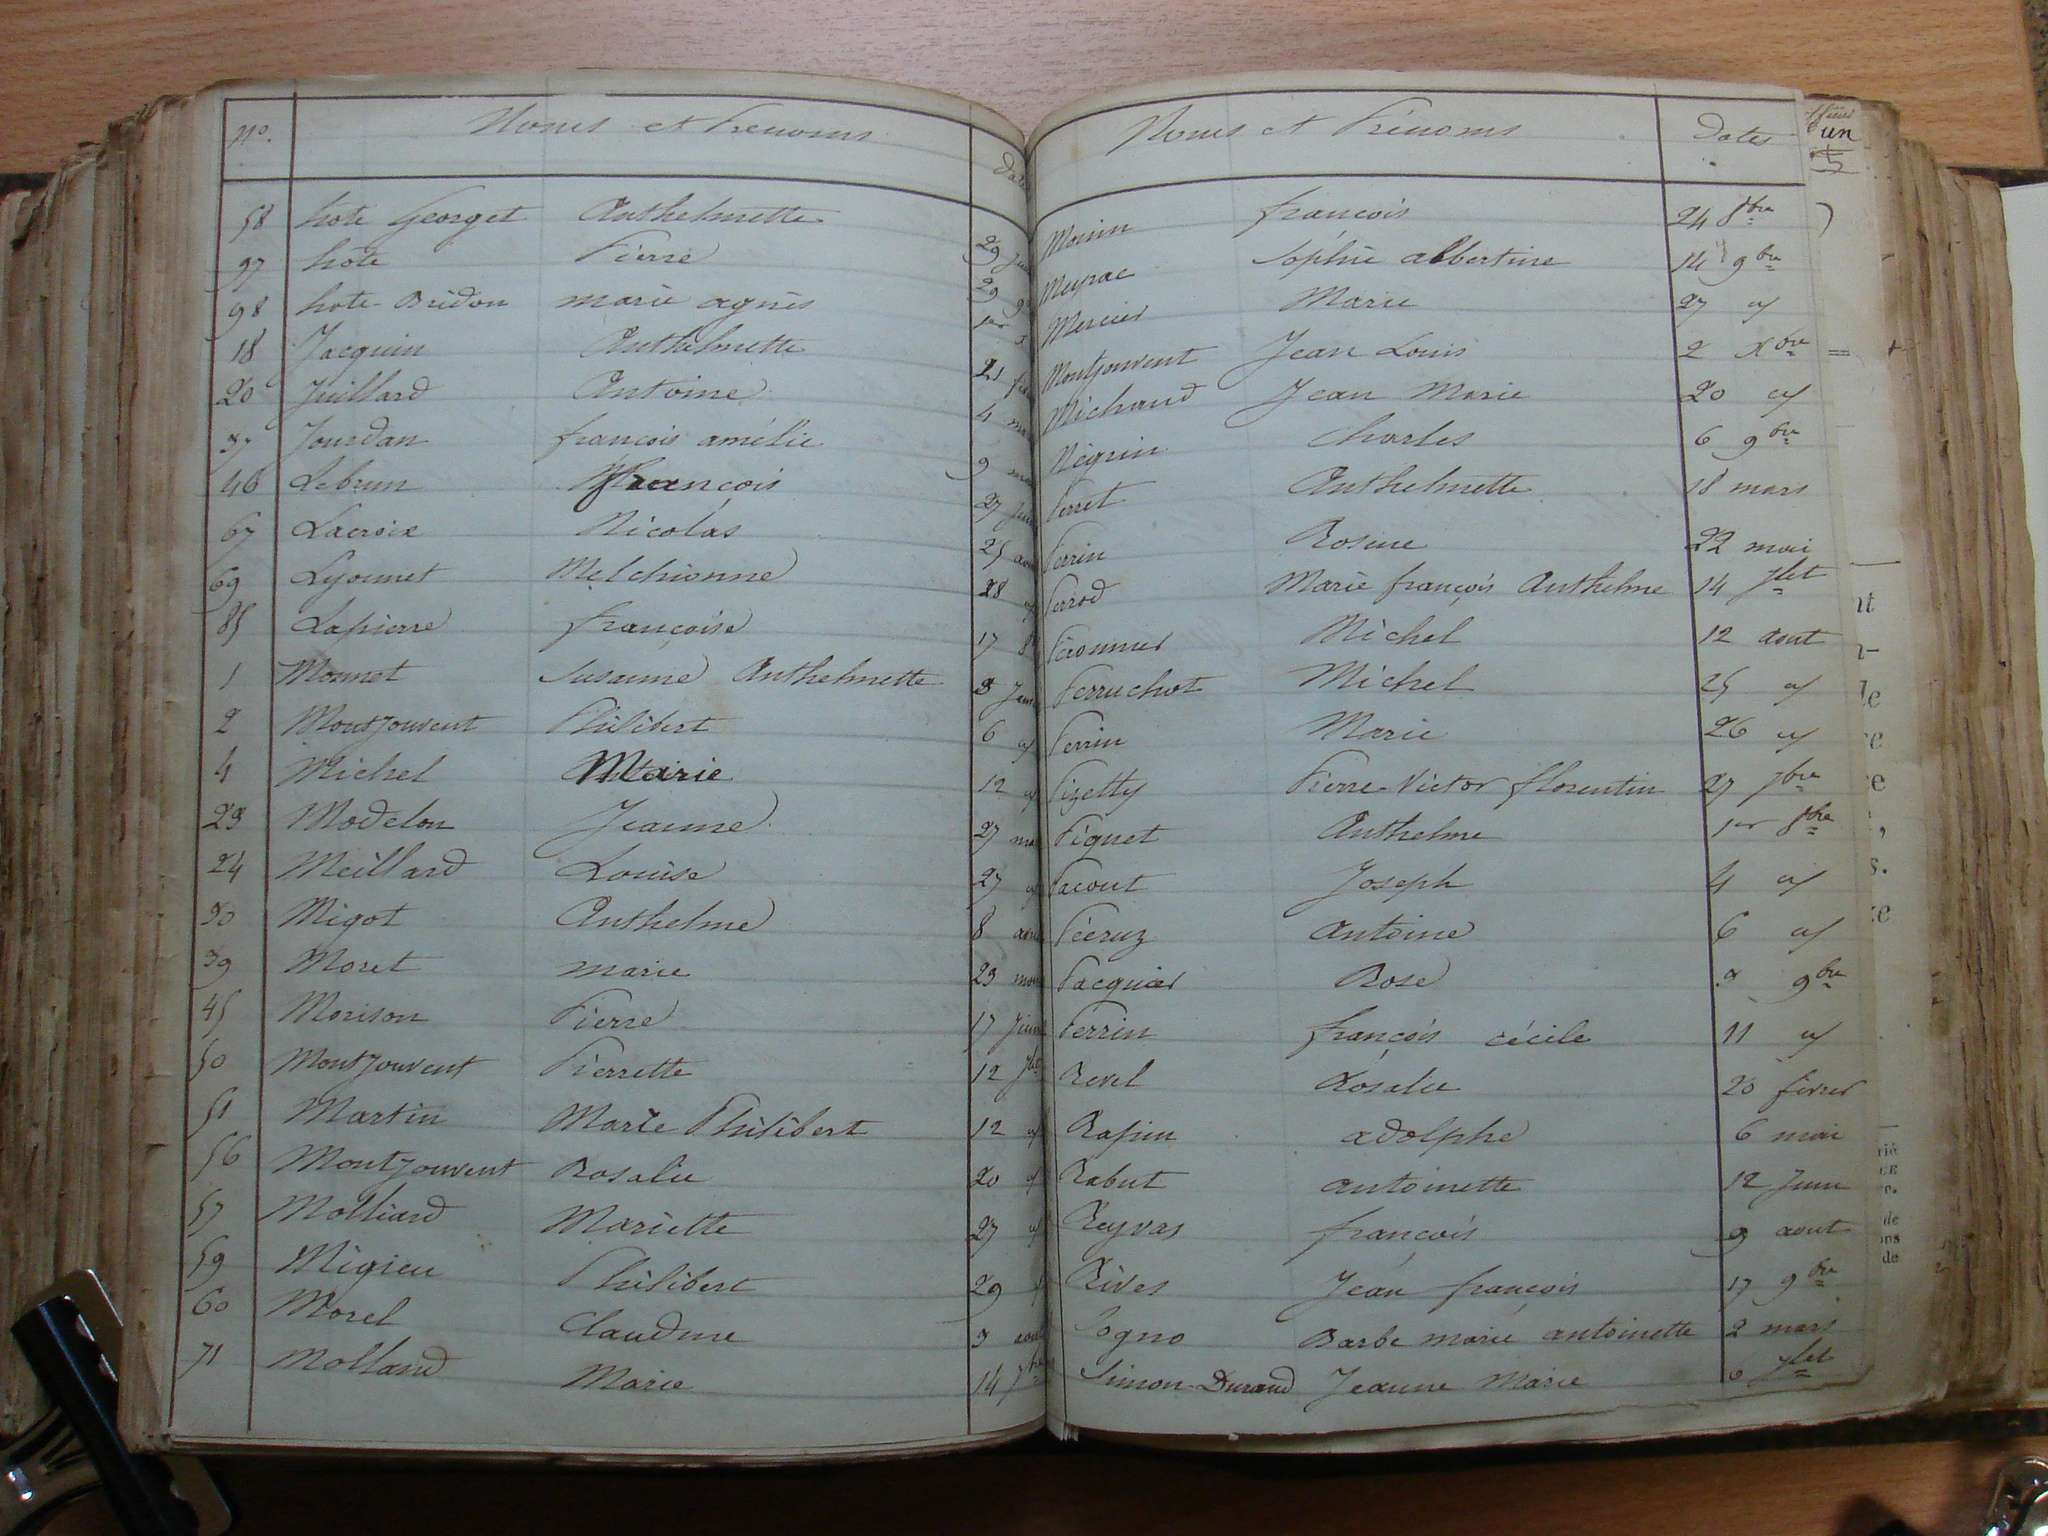 No. Noms et Prenoms Dates
58 hote Georget Anthelmette 29
97 hote Pierre 29
98 hote-Bridon marie agnès 1er
18 Jacquin Anthelmette 21
20 Juillard Antoine 4
37 Jourdan francois amélie 9
46 Lebrun François 27
67 Lacroix Nicolas 25
69 Lyonnet Melchionne 28
85 Lapierre françoise 17
1 Monnet Susanne Anthelmette 3
2 Montjouvent Philibert 6
4 Michel Marie 12
23 Modelon Jeanne 27
24 Meillard Louise 27
30 Migot Anthelme 8
39 Moret marie 23
45 Morison Pierre 17
50 Montjouvent Pierrette 12
51 Martin Marie Philibert 12
56 Montjouvent Rosalie 20
57 Molliard Mariette 27
59 Migieu Philibert 29
60 Morel Claudine 3
71 Molland Marie 14
Noms et Prénoms Dates
françois 24 8bre
Sophie albertine 14 9bre
Mercier Marie 27
Montjouvent Jean Louis 2 Xbre
Michaud Jean Marie 20
Négrin Charles 6 9bre
Perret Anthelmette 18 mars
Perrin Rosine 22 mai
Perrod Marie françois Anthelme 14 Jlet
Péronnier Michel 12 aout
Perruchot Michel 25
Perrin Marie 26
Pizetty Pierre-Victor florentin 27 7bre
Piguet Anthelme 1er 8bre
Pacout Joseph 4
Pécruz Antoine 6
Pacquier Rose 9bre
Perrin françois cécile 11
Revel Rosalie 20 fevrier
Rapin adolphe 6 mai
Rabut antoinette 12 Juin
Reyvas françois 9 aout
Rives Jean françois 17 9bre
Sogno Barbe marie antoinette 2 mars
Simon-Durand Jeanne Marie 6 Jlet
un
5